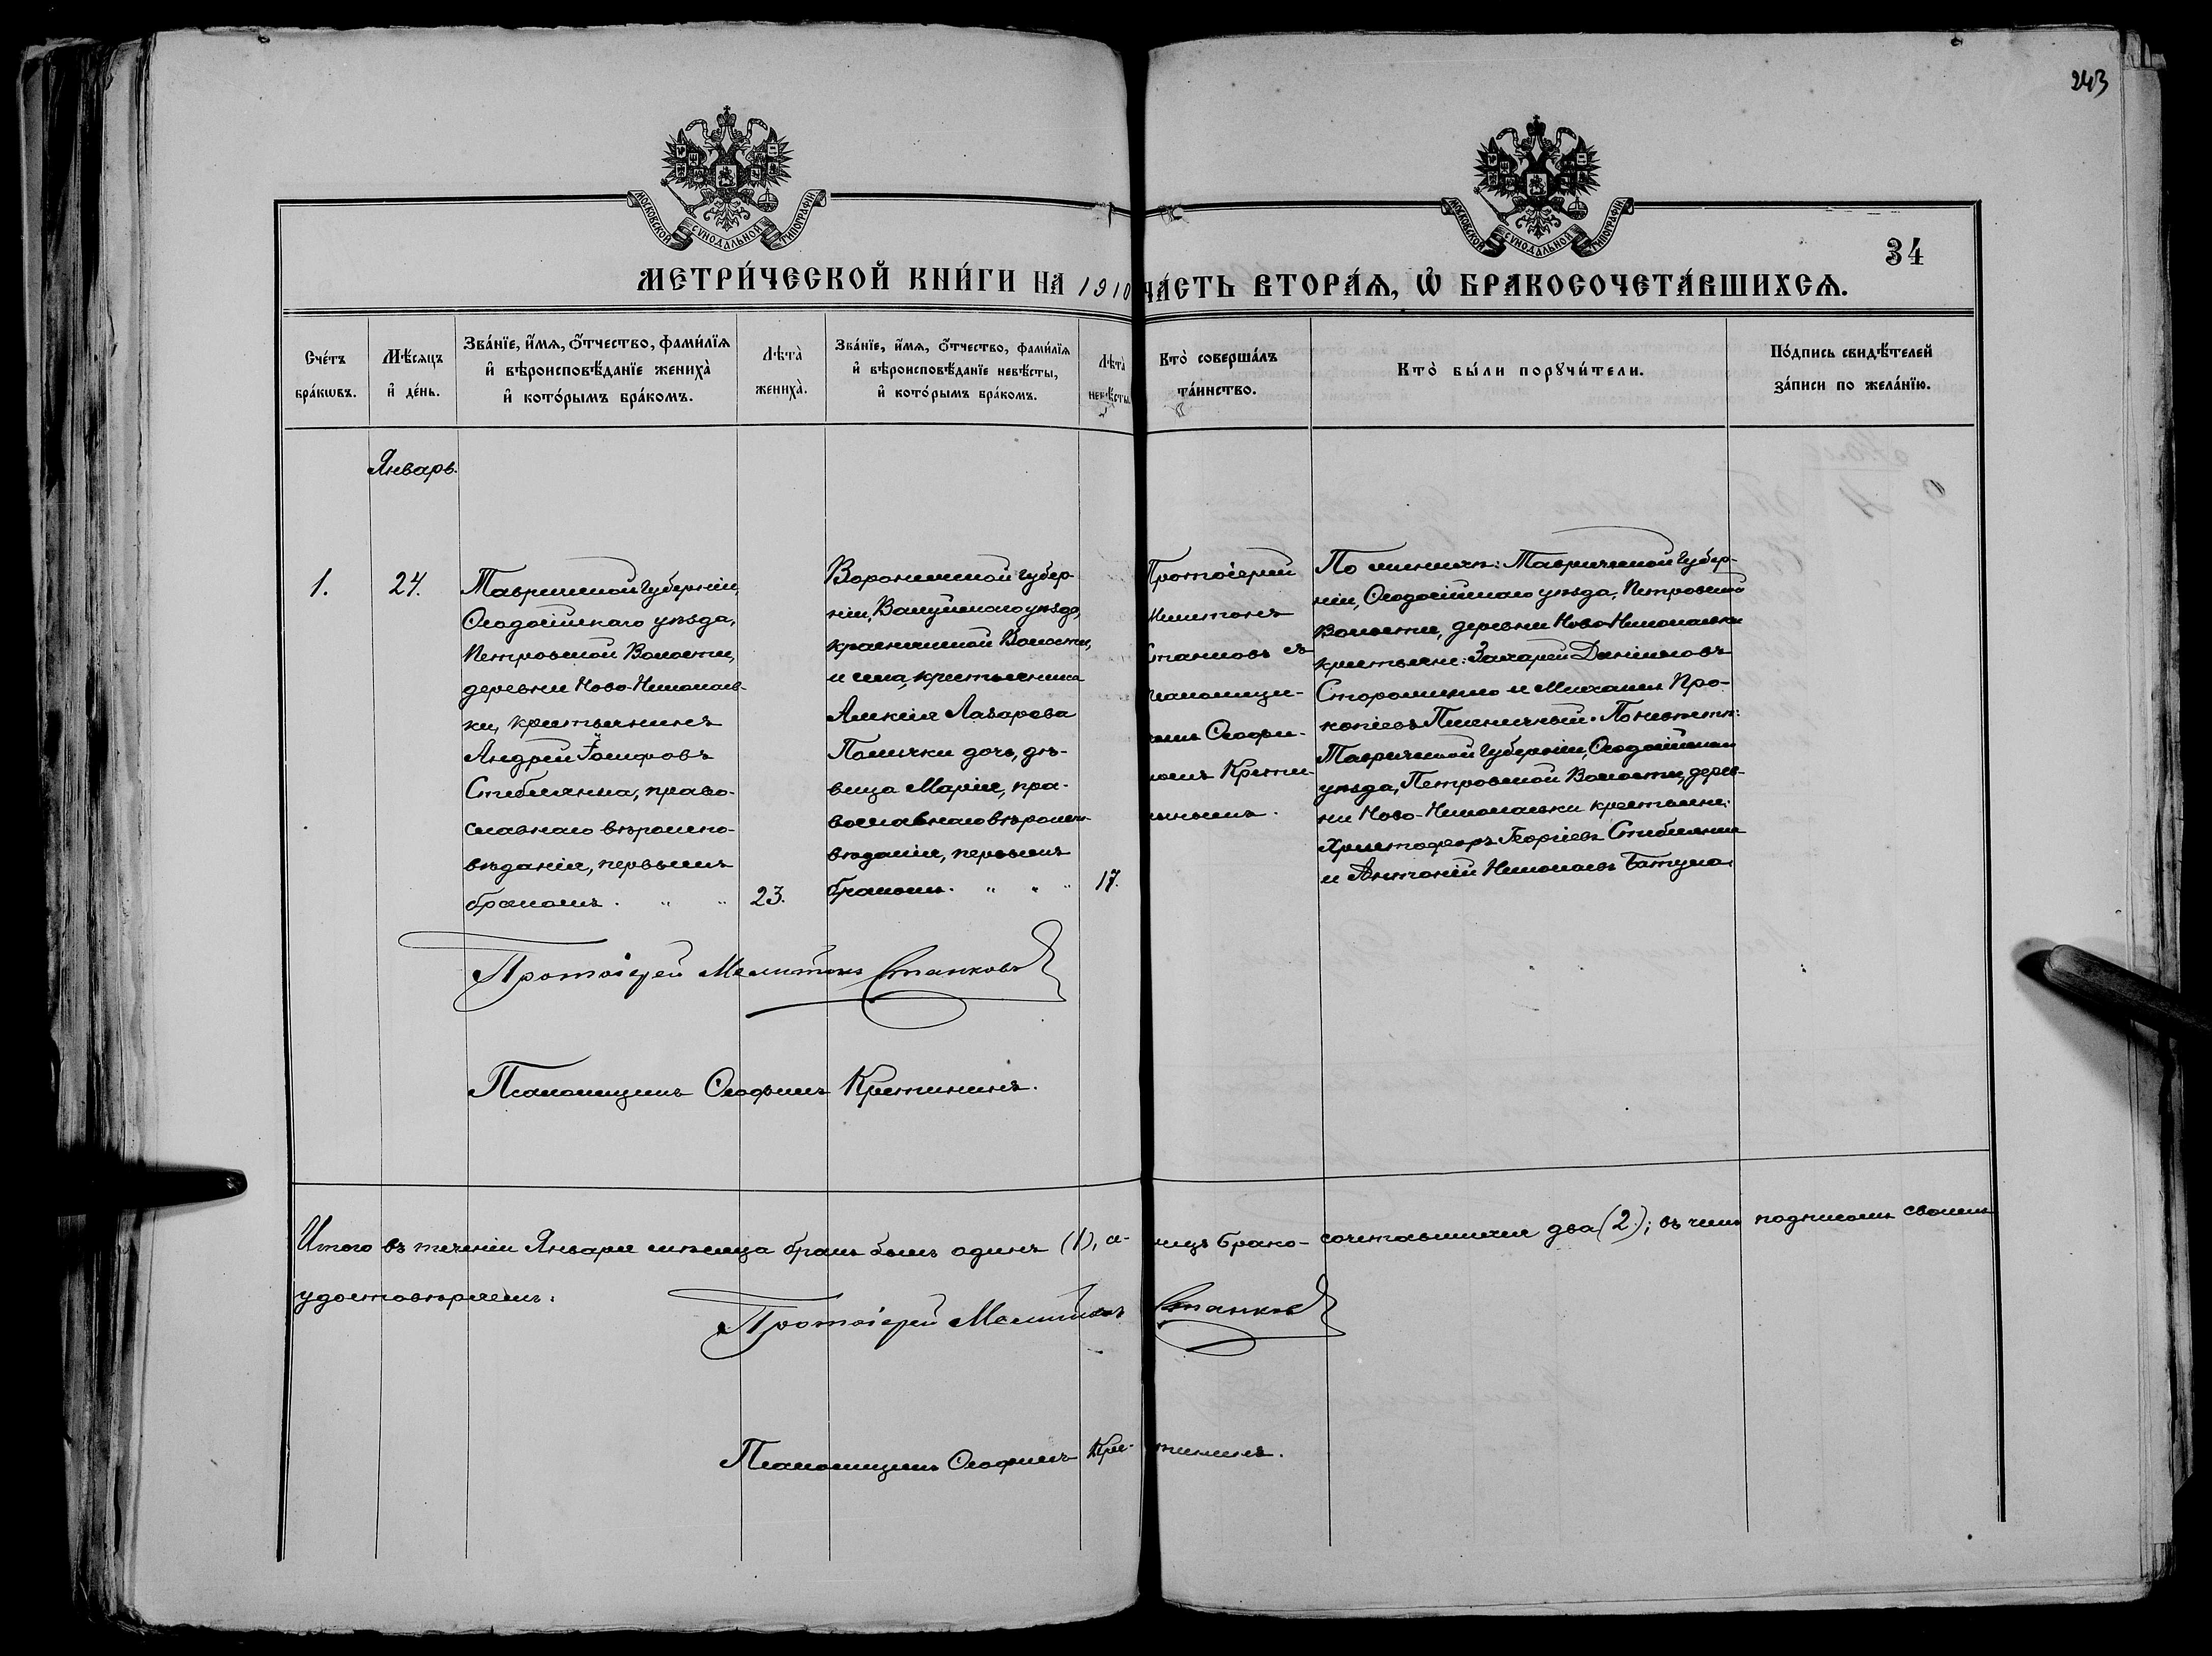 243
МОСКОВСКОЙ СѴНОДАЛЬНОЙ ТИПОГРАФІИ
МОСКОВСКОЙ СѴНОДАЛЬНОЙ ТИПОГРАФІИ
34
МЕТРИ́ЧЕСКОЙ КНИ́ГИ НА 1910 ЧА́СТЬ ВТОРА́Ѧ, Ѡ҆ БРАКОСОЧЕТА́ВШИХСѦ.
Сче́тъ бра́кѡвъ.
Мѣ́сяцъ и҆ де́нь.
Зва́нїе, и҆́мѧ, ѻ҆́тчество, фами́лїѧ
и҆ вѣроисповѣ́данїе жениха̀
и҆ кото́рымъ бра́комъ.
Лѣта̀ жениха̀.
Зва́нїе, и҆́мѧ, ѻ҆́тчество, фами́лїѧ
и҆ вѣроисповѣ́данїе невѣ́сты,
и҆ кото́рымъ бра́комъ.
Лѣта̀ невѣ́сты.
Кто̀ соверша́лъ
та́инство.
Кто̀ бы́ли порꙋчи́тели.
По́дпись свидѣ́телей
за́писи по жела́нїю.
Январь.
1.
24.
Таврической Губерніи,
Ѳеодосійскаго уѣзда,
Петровской Волости,
деревни Ново-Николаев-
ки, крестьянинъ
Андрей
Стеблянка, право-
славнаго вѣроиспо-
вѣданія, первымъ
бракомъ. " "
23.
Воронежской Губер-
ніи, Валуйскаго уѣзда,
Волости,
и села, крестьянина
Алексія Лазарова
дочь, дѣ-
вица Марія, пра-
вославнаго вѣроиспо-
вѣданія, первымъ
бракомъ. " " "
17.
Протоіерей
Мелитонъ
Станковъ съ
псаломщи-
комъ Ѳеофи-
ломъ Крети-
нинымъ.
По женихѣ: Таврической Губер-
ніи, Ѳеодосійскаго уѣзда, Петровской
Волости, деревни Ново-Николаевки
крестьяне: Захарій Даниловъ
Сторожко и Михаилъ Про-
копіевъ Пшеничный. По невѣстѣ:
Таврической Губерніи, Ѳеодосійскаго
уѣзда, Петровской Волости, дерев-
ни Ново-Николаевки крестьяне:
Христофоръ Георгіевъ Стеблянка
и Антоній Николаевъ Батула.
Протоіерей Мелитонъ Станковъ
Псаломщикъ Ѳеофилъ Кретининъ.
Итого въ теченіи Января мѣсяца бракъ былъ одинъ (1), а лицъ брако-сочетавшихся два (2); въ чемъ подписомъ своимъ
удостовѣряемъ:
Протоіерей Мелитонъ Станковъ
Псаломщикъ Ѳеофилъ Кре-тининъ.